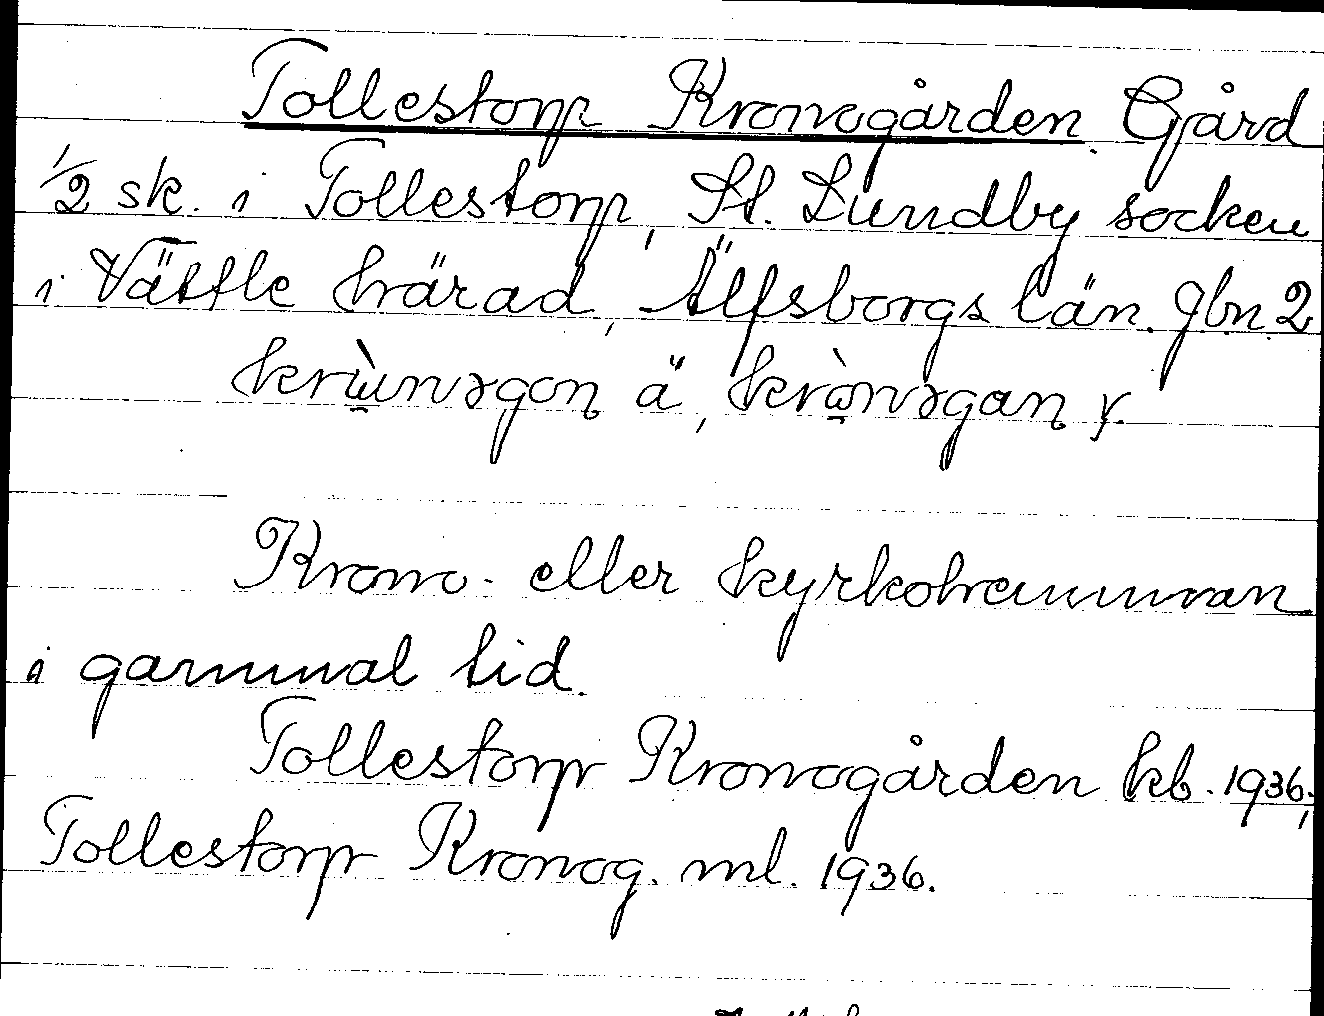 Tollestorp Kronogården. Gård
1/2 sk. i Tollestorp, St. Lundby socken
i Vättle härad, Älfsborgs län. Gbn 2
krὼnәgɑn ä, krὼnәgan y.
Krono- eller kyrkohemman
i gammal tid.
Tollestorp Kronogården kb. 1936;
Tollestorp Kronog. ml. 1936.